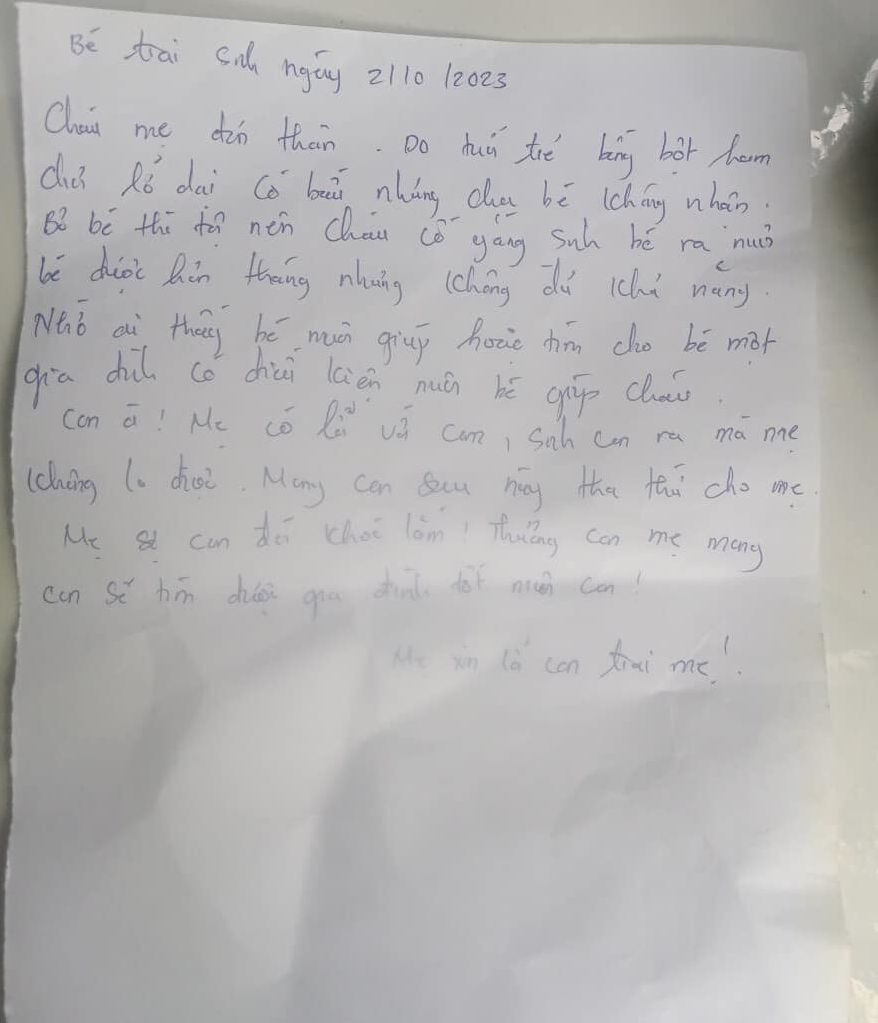 Bé trai sinh ngày 2/10/2023
Cháu mẹ đơn thân. Do tuổi trẻ bồng bột ham
chơi lỡ dại có bầu nhưng cha bé không nhận.
Bỏ bé thì tội nên cháu cố gắng sinh bé ra nuôi
bé được hơn tháng nhưng không đủ khả năng.
Nhờ ai thấy bé nuôi giúp hoặc tìm cho bé một
gia đình có điều kiện nuôi bé giúp cháu.
Con à! Mẹ có lỗi với con, sinh con ra mà mẹ
không lo được. Mong con sau này tha thứ cho mẹ.
Mẹ con đã khóc lắm! Thương con mẹ mong
con sẽ tìm được gia đình tốt nuôi con!
Mẹ xin lỗi con trai mẹ!